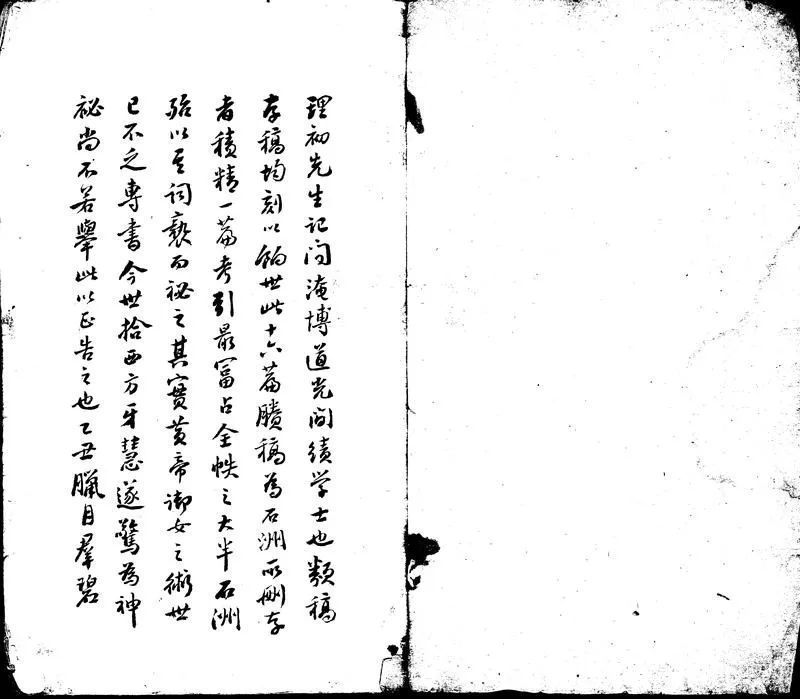 理初先生記問淹博道光間績学士也類稿
存稿均刻以餉世此十六篇賸稿為石洲所刪存
者積精一篇考引最富占全帙之大半石洲
殆以其詞褻而祕之其實黃帝御女之術世
已不乏專書今世拾西方牙慧遂驚為神
祕尚不若舉此以正告之也乙丑臘月羣碧